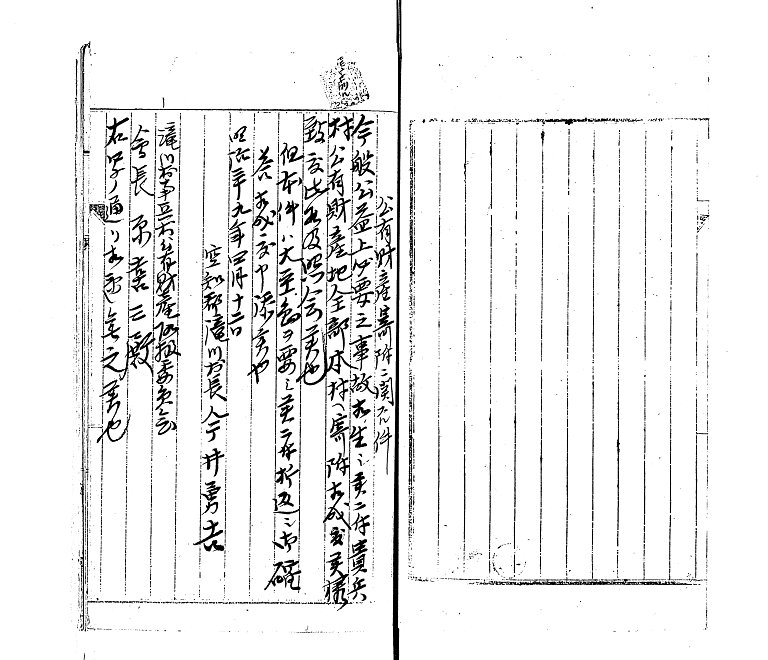 公有財産寄附ニ関スル件
今般公益上必要之事故相生シ候ニ付貴兵
村公有財産地全部本村ヘ寄附相成度候様
致度此段及照会候也
但本件ハ大至急ヲ要シ候ニ付折返シ御確
答相成度申添候也
明治三十九年四月十二日
空知郡滝川村長 今井勇吉
滝川村字屯田兵村公有財産取扱委員会
会長 原喜三殿
右写ノ通リ相違無之候也